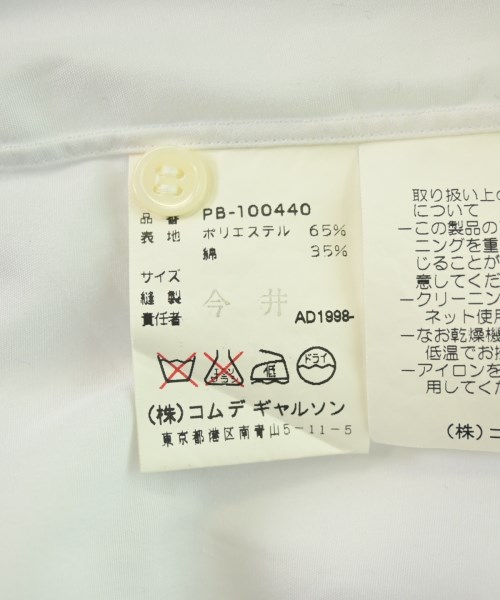 品番 PB-100440
表地 ポリエステル 65%
綿 35%
サイズ
縫製 今井
責任者 AD1998-
低 ドライ
(株)コムデ ギャルソン
東京都港区南青山5-11-5
取り扱い上の
について
−この製品の
ニングを重
じることが
意してくだ
−クリーニン
ネット使用
−なお乾燥機
低温でお持
−アイロンを
用してくだ
(株)コ